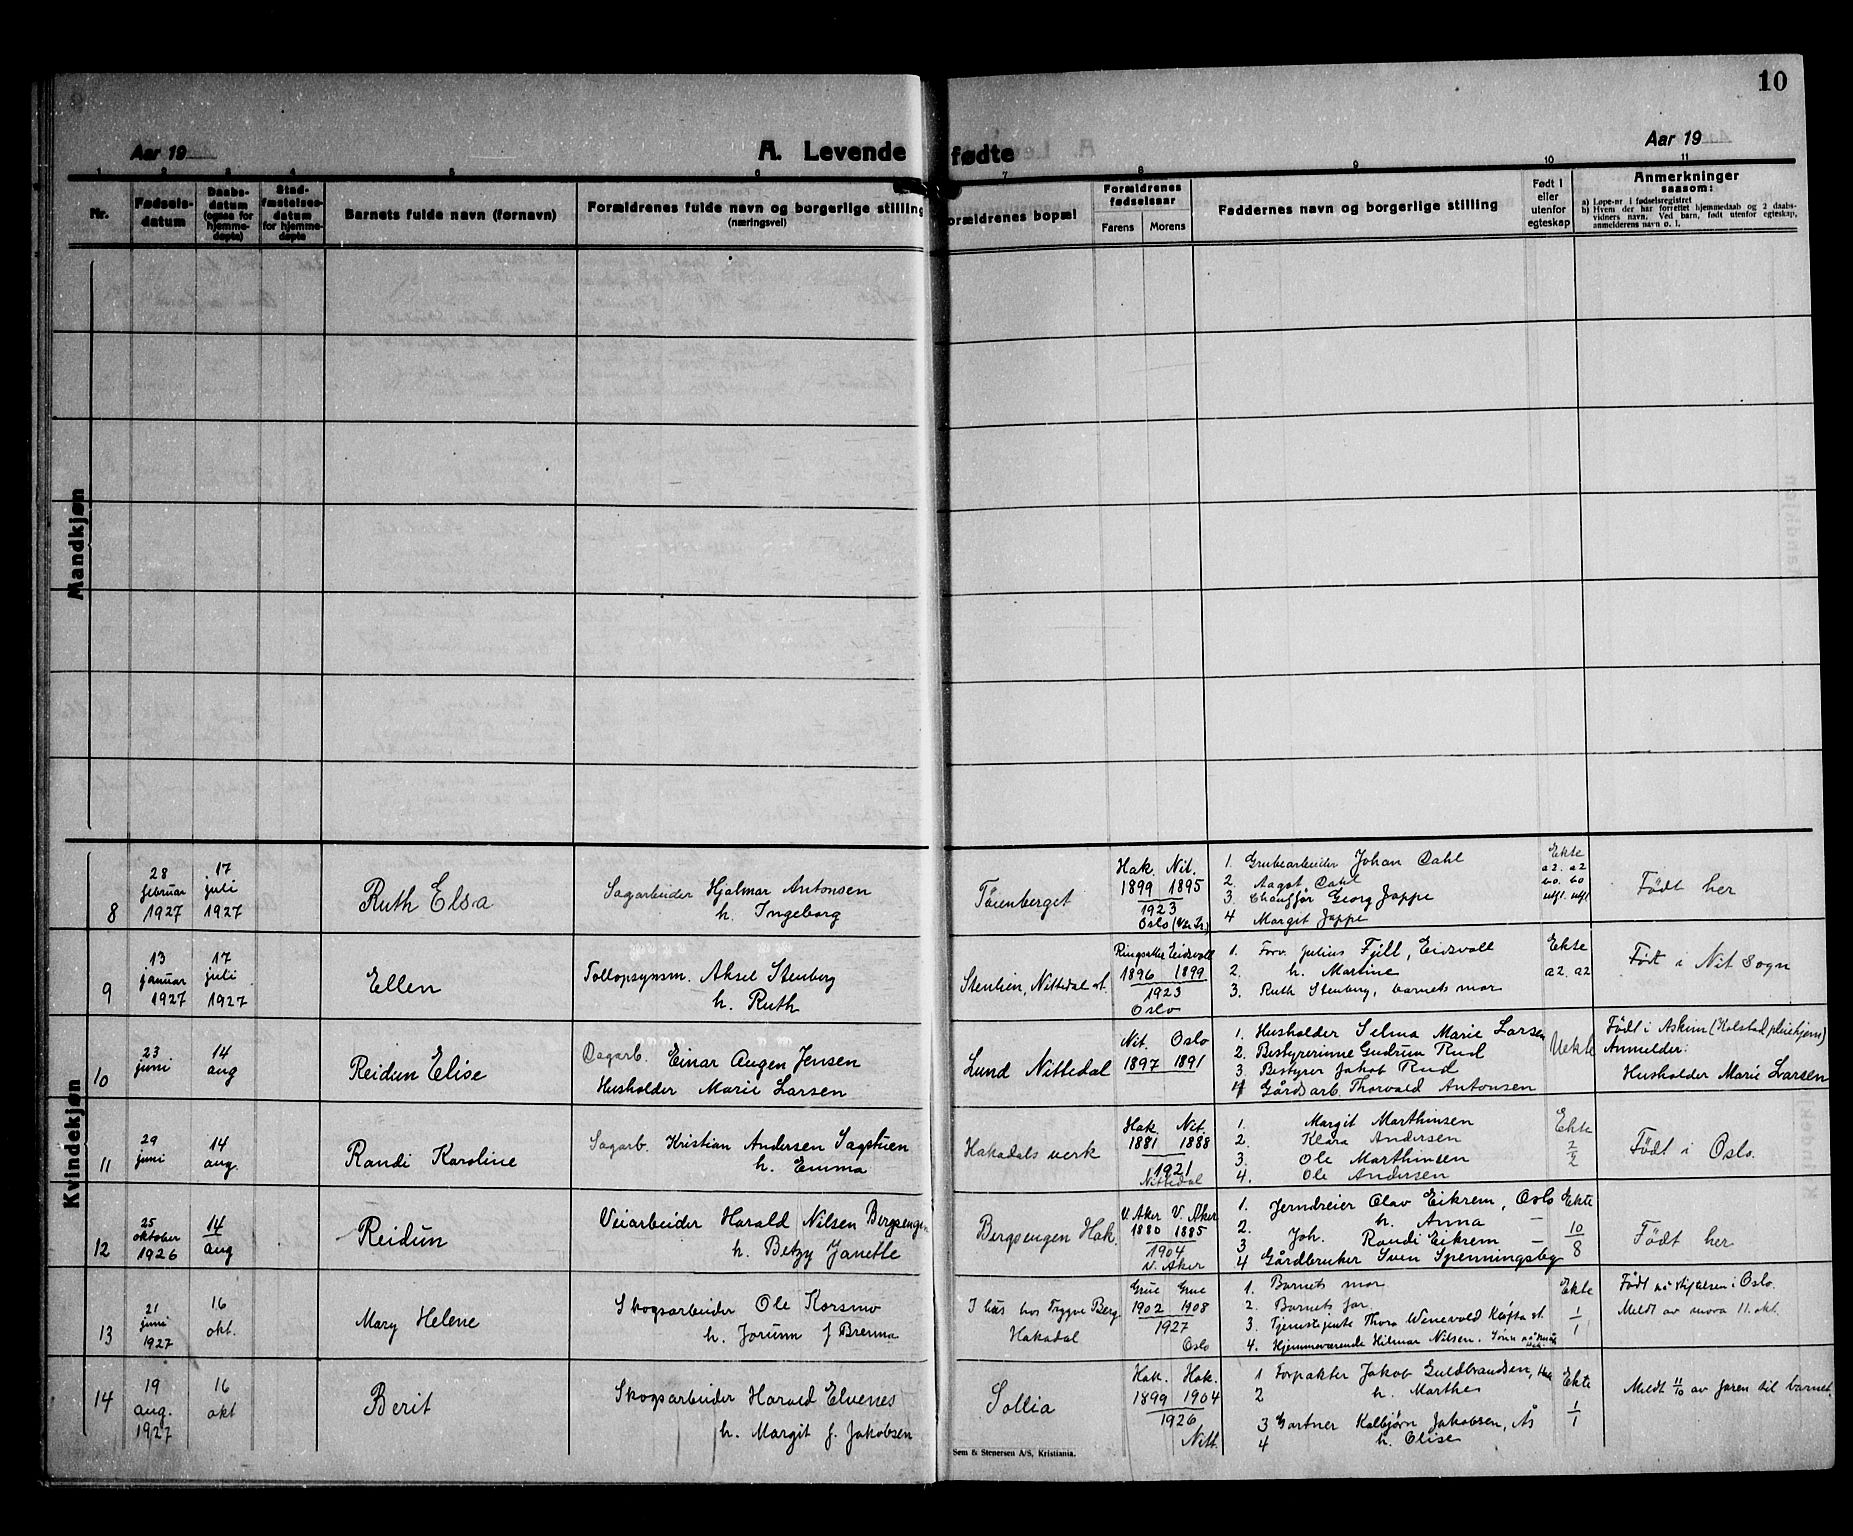 10
Aar 19
A. Levende fødte
Aar 19
1 2 3 4 5 6 7 8 9 10 11
Nr.
Fødsels-
datum
Daabs-
datum
(ogsaa for
hjemme-
døpte)
Stad-
fæstelses-
datum
for hjemme-
døpte
Barnets fulde navn (fornavn)
Forældrenes fulde navn og borgerlige stilling
(næringsvei)
Forældrenes bopæl
Forældrenes
fødselsaar
Farens Morens
Faddernes navn og borgerlige stilling
Født i
eller
utenfor
egteskap
Anmerkninger
saasom:
a) Løpe-nr i fødselsregistret
b) Hvem der har forrettet hjemmedaab og 2 daabs-
vidners navn. Ved barn, født utenfor egteskap,
anmelderens navn o. l.
Mandkjøn
Kvindekjøn
8
28
februar
1927
17
juli
1927
Ruth Elsa
Sagarbeider Hjalmar Antonsen
h. Ingeborg
Tøienberget
Hak. Nit.
1899 1895
1923
Oslo
1. Grubearbeider Johan Dahl
2. Aagot Dahl
3. Chauffør Georg Jappe
4 Margit Jappe
Ekte
a2. a2
bo. bo
utfl. utfl
Født her
9
13
januar
1927
17
juli
1927
Ellen
Tollopsynsm. Aksel Stenberg
h. Ruth
Stenlien, Nittedal st.
Ringsaker Eidsvoll
1896 1899
1923
Oslo
1. Forv. Julius Fjell, Eidsvoll
2. h. Martine
3. Ruth Stenberg, barnets mor
Ekte
a2. a2
Født i Nit Sogn
10
23
juni
14
aug
Reidun Elise
Dagarb. Einar Augen Jensen
Husholder Marie Larsen
Lund Nittedal
Nit. Oslo
1897 1891
1. Husholder Selma Marie Larsen
2. Bestyrerinne Gudrun Rud
3. Bestyrer Jakob Rud
4 Gårdsarb. Thorvald Antonsen
Uekte
Født i Askim (Kolstad pleiehjem)
Anmelder:
Husholder Marie Larsen
11
29
juni
14
aug.
Randi Karoline
Sagarb. Kristian Andersen Sagstuen
h. Emma
Hakadals verk
Hak. Nit.
1881 1888
1921
Nittedal
1. Margit Marthinsen
2. Klara Andersen
3. Ole Marthinsen
4. Ole Andersen
Ekte
2/2
Født i Oslo.
12
25
oktober
1926
14
aug
Reidun
Veiarbeider Harald Nilsen Bergsengen
h. Betzy Janette
Bergsengen Hak.
V. Aker V. Aker
1880 1885
1904
V. Aker
1. Jerndreier Olav Eikrem, Oslo
2. h. Anna —
3 Joh. Randi Eikrem —
4 Gårdbruker Sven Spenningsby
Ekte
10/8
Født her
13
21
juni
1927
16
okt.
Mary Helene
Skogsarbeider Ole Korsmo
h. Jorunn f Brenna
I hus hos Trygve Berg
Hakadal
Grue Grue
1902 1908
1927
Oslo
1. Barnets mor
2. Barnets far.
3. Tjenstejente Thora Winevold Kløfta st.
4. Hjemmeværende Hilmar Nilsen.
Ekte
1/1
Født på Stiftelsen i Oslo.
Meldt av mora 11. okt.
14
19
aug.
1927
16
okt
Berit
Skogsarbeider Harald Elvenes
h. Margit f. Jakobsen
Sollia
Hak. Hak.
1899 1904
1926
Nitt.
1 Forpakter Jakob Guldbrandsen, Hak
2 h. Marthe
3 Gartner Kolbjørn Jakobsen, Ås
4 h. Elise
Ekte
1/1
Meldt 11/10 av faren til barnet.
Sem & Stenersen A/S, Kristiania.